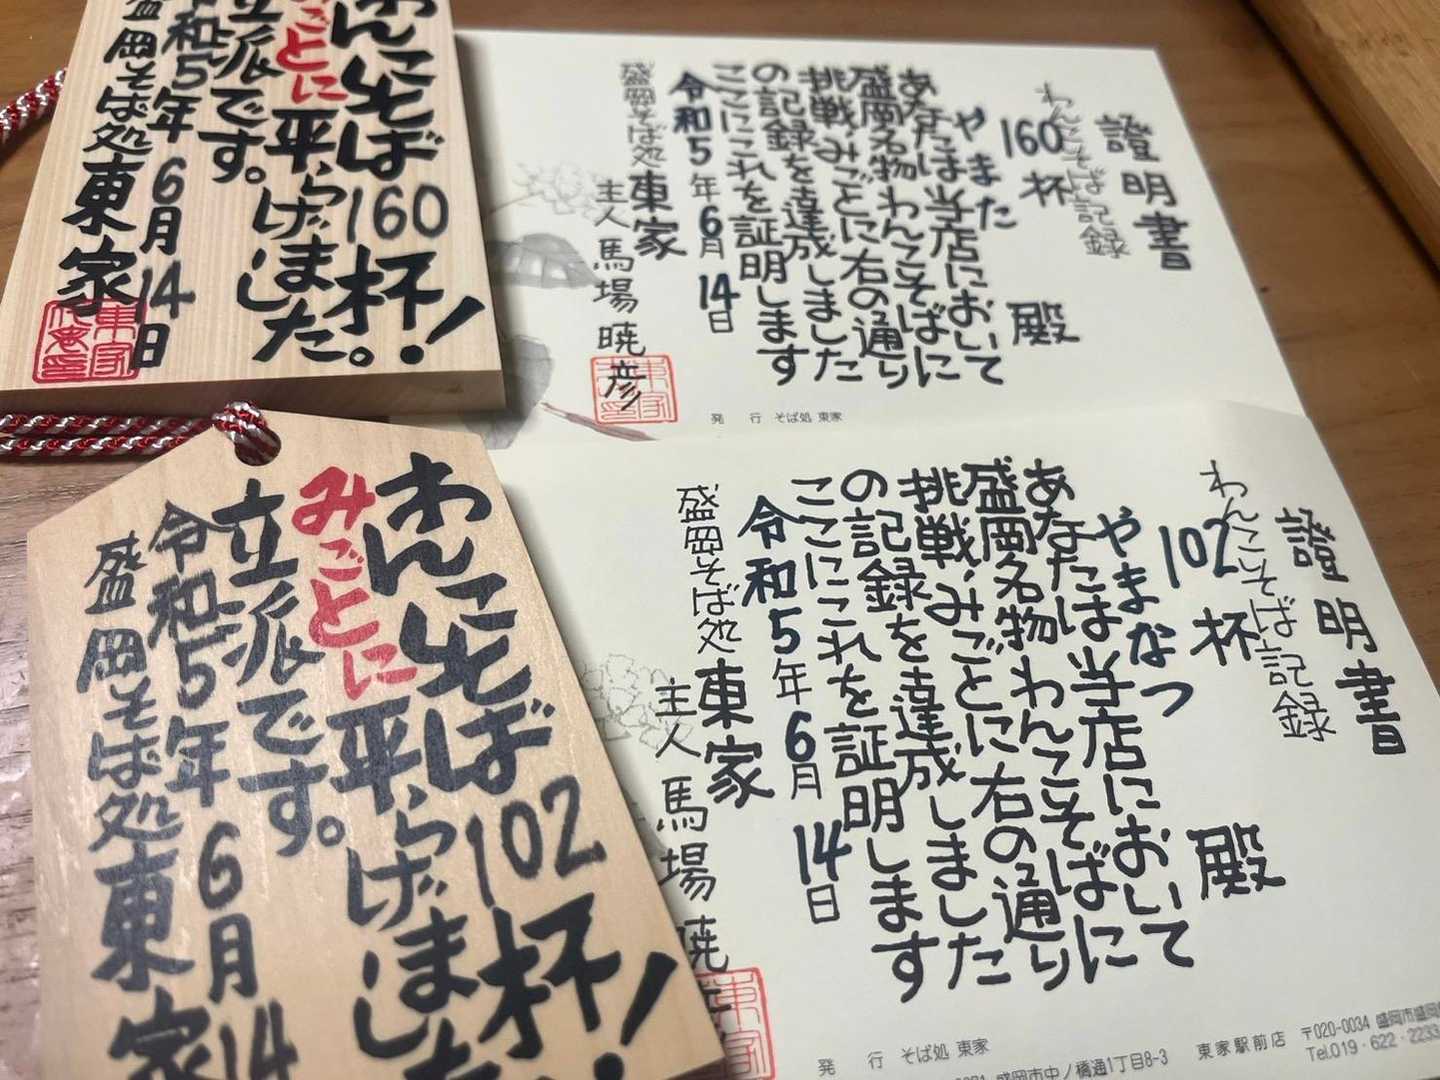 わんこそば160杯!
みごとに平らげました。
立派です。
令和5年6月14日
盛岡そば処 東家
證明書
わんこそば記録
160杯
やまた 殿
あなたは当店において
盛岡名物わんこそばに
挑戦、みごとに右の通り
の記録を達成しました
ここにこれを証明します
令和5年6月14日
盛岡そば処 東家
主人 馬場 暁彦
発 行 そば処 東家
わんこそば102杯!
みごとに平らげました
立派です。
令和5年6月14
盛岡そば処 東家
證明書
わんこそば記録
102杯
やまなつ 殿
あなたは当店において
盛岡名物わんこそばに
挑戦、みごとに右の通り
の記録を達成しました
ここにこれを証明します
令和5年6月14日
盛岡そば処 東家
主人 馬場 暁
発 行 そば処 東家
盛岡市中ノ橋通1丁目8-3
東家駅前店 〒020-0034 盛岡市盛岡
Tel.019・622・2233